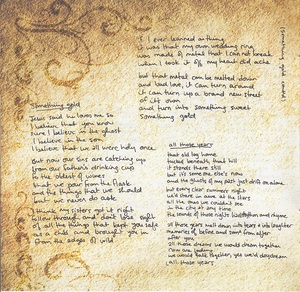 (something gold cont'd)
If I ever learned anything
it was that my own wedding ring
was made of metal that I can not break
when I took it off my heart did ache
but that metal can be melted down
and lord love, it can turn around
it can turn up a brand new street
of its own
and turn into something sweet
Something gold
Something gold
Jesus said he loves me so
I believe that you know
sure I believe in the ghost
I believe in the song
I believe that we all were holy once
But now our sins are catching up
from our virtues drinking cup
in the oldest of wines
that we pour from the flask
and the things that we should
but we never do ask
I think my sisters got it right
follow through and don't lose sight
of all the things that kept you safe
as a child and brought you in
from the edges of wild
all those years
that old log home
tucked beneath that hill
it stands there still
but it's someone else's now
and the ghosts of my past just drift on alone
but every clear summers night
we'd stare in awe at the stars
all the ones we couldn't see
in the city we are from
the sounds of those nights
all those years melt down into tears and into laughter
memories of before and from after
after you
all those dreams we would dream together
now are fading
we would talk together, yes we'd daydream
all those years